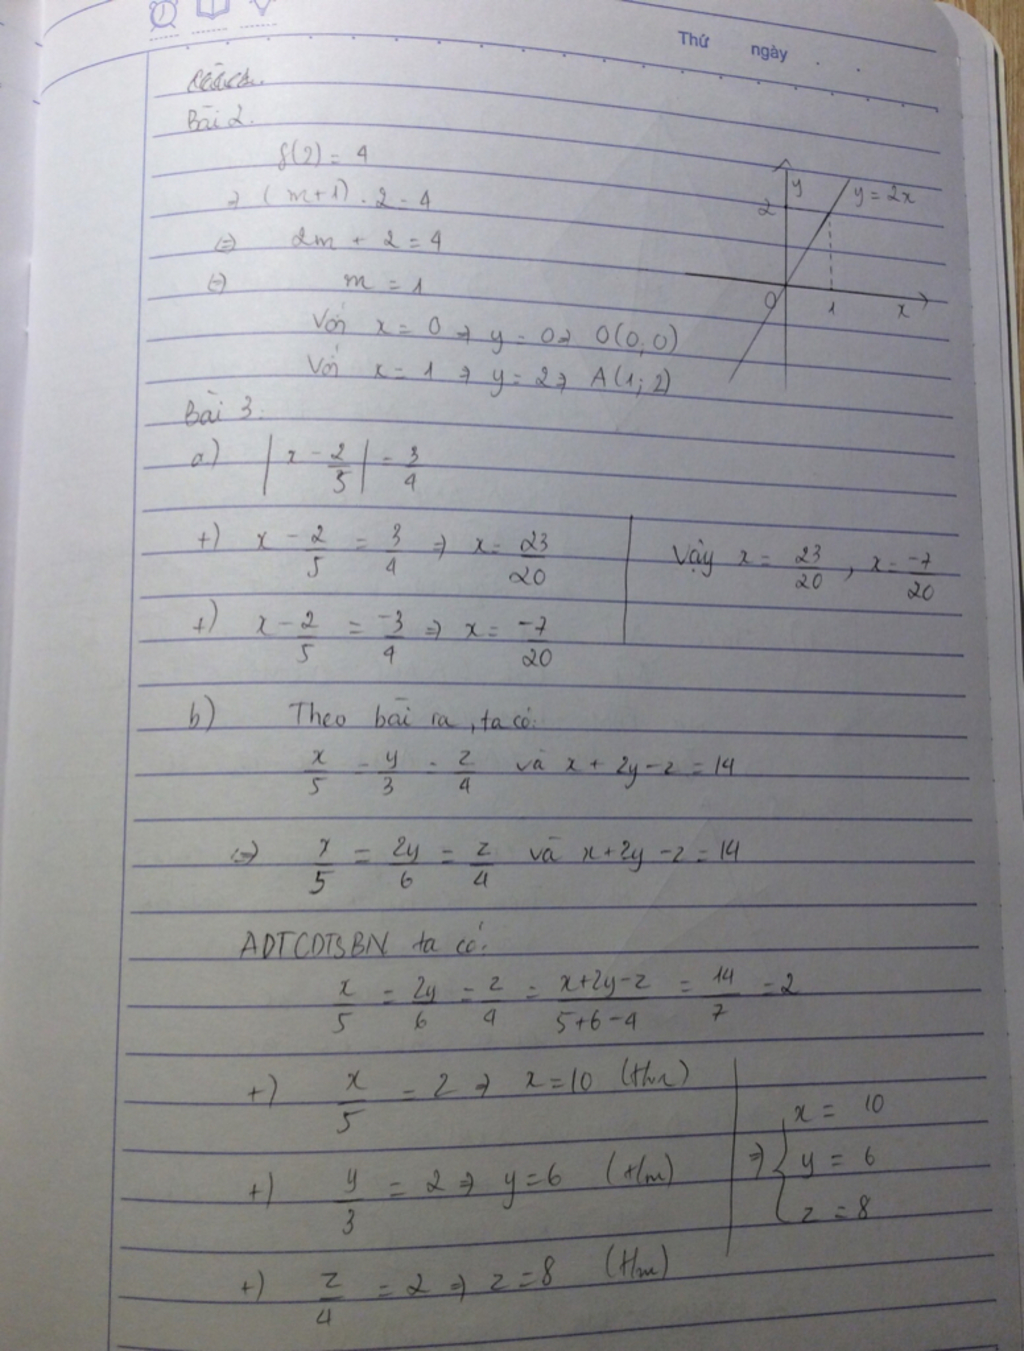 Thứ ngày
Bài 2.
f(2) = 4
=> (m+1) . 2 = 4
<=> 2m + 2 = 4
<=> m = 1
Với x = 0 => y = 0 => O(0,0)
Với x = 1 => y = 2 => A(1; 2)
y
2
y = 2x
O
1
x
Bài 3:
a) |x - 2/5| = 3/4
+) x - 2/5 = 3/4 => x = 23/20
+) x - 2/5 = -3/4 => x = -7/20
Vậy x = 23/20 , x = -7/20
b) Theo bài ra, ta có:
x/5 = y/3 = z/4 và x + 2y - z = 14
<=> x/5 = 2y/6 = z/4 và x + 2y - z = 14
ADTCDTSBN ta có:
x/5 = 2y/6 = z/4 = (x+2y-z)/(5+6-4) = 14/7 = 2
+) x/5 = 2 => x = 10 (t/m)
+) y/3 = 2 => y = 6 (t/m)
+) z/4 = 2 => z = 8 (t/m)
=> { x = 10
y = 6
z = 8